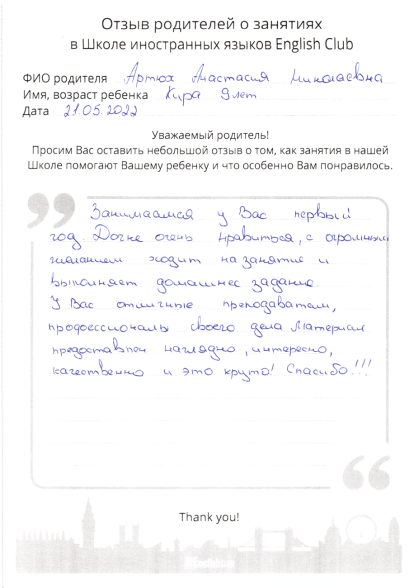 Отзыв родителей о занятиях
в Школе иностранных языков English Club
ФИО родителя Артюх Анастасия Николаевна
Имя, возраст ребенка Кира 9 лет
Дата 21.05.2022
Уважаемый родитель!
Просим Вас оставить небольшой отзыв о том, как занятия в нашей
Школе помогают Вашему ребенку и что особенно Вам понравилось.
Занимаемся у Вас первый
год. Дочке очень нравиться, с огромным
желанием ходит на занятие и
выполняет домашнее задание.
У Вас отличные преподаватели,
профессионалы своего дела. Материал
предоставлен наглядно, интересно,
качественно и это круто! Спасибо!!!
Thank you!